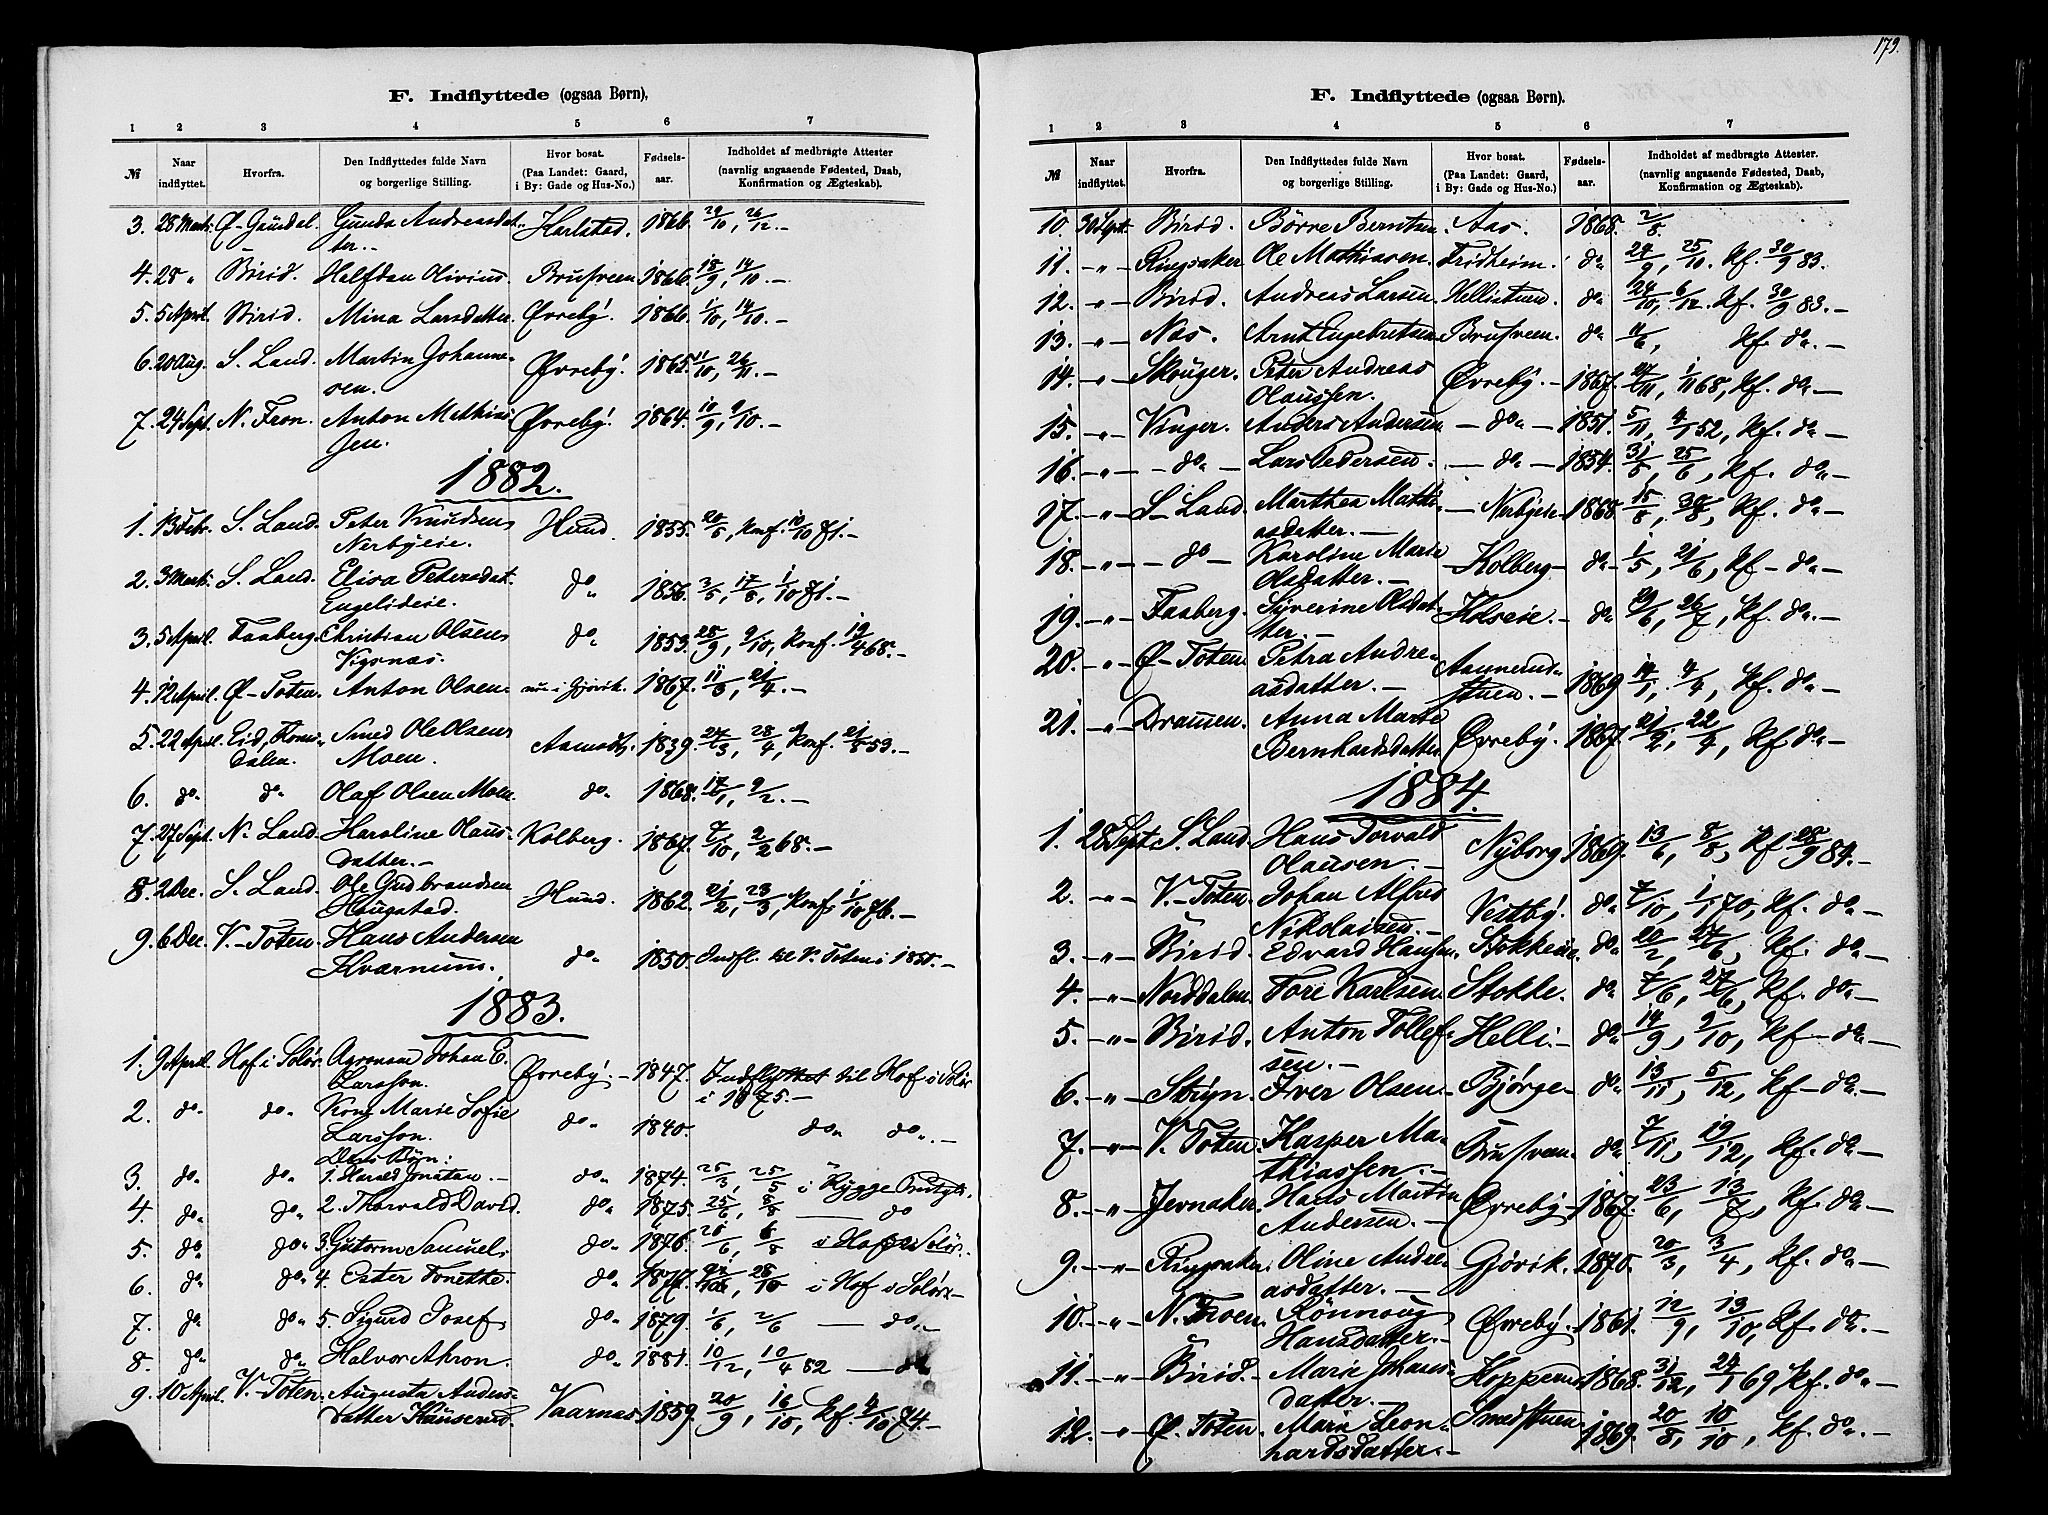 F. Indflyttede (ogsaa Børn).
1 2 3 4 5 6 7
№ Naar indflyttet. Hvorfra. Den Indflyttedes fulde Navn og borgerlige Stilling. Hvor bosat. (Paa Landet: Gaard, i By: Gade og Hus-No.) Fødsels-aar. Indholdet af medbragte Attester (navnlig angaaende Fødested, Daab, Konfirmation og Ægteskab).
3. 28 Marts. Ø-Gausdal. Gunda Andreasdat- Karlstad. 1866. 29/10, 26/12.-
ter.-
4. 28 " Birid. Halfdan Olivius. Brusveen. 1866. 18/9, 14/10.-
5. 5 April. Birid. Mina Larsdatter. Øvreby. 1866. 1/10, 14/10.-
6. 20 Aug. S. Land. Martin Johanne- Øvreby. 1865. 11/10, 26/11.-
sen.
7. 24 Sept. N. Fron. Anton Mathias- Øvreby. 1864. 10/9, 9/10.-
sen.
1882.
1. 13 Febr. S. Land. Peter Knudsen Hund. 1855. 20/5, konf. 10/10 71.-
Nerbyeie.
2. 3 Marts. S. Land. Elisa Petersdat. do 1856. 3/5, 17/8, 1/10 71.-
Engelideie.
3. 5 April. Faaberg. Christian Olsen do 1853. 28/9, 9/10, konf. 19/4 68.-
Vigsnæs.
4. 12 April. Ø-Toten. Anton Olsen. nu i Gjøvik. 1867. 11/3, 21/4.-
5. 22 April. Eid, Roms- Smed Ole Olsen Aamodt. 1839. 24/3, 28/4, konf. 21/5 53.-
dalen. Moen.
6. do do Olaf Olsen Moen. do 1868. 17/1, 9/2.-
7. 27 Sept. N. Land. Karoline Olaus- Kolberg. 1867. 7/10, 2/2 68.-
datter.-
8. 2 Dec. S. Land. Ole Gudbrandsen Hund. 1862. 21/2, 23/3, Konf. 1/10 76.-
Haugstad.
9. 6 Dec. V.-Toten. Hans Andersen do 1850. Indfl. til V. Toten i 1850.-
Kvarnum.
1883.
1. 9 April. Hof i Solør. Agronom Johan E. Øvreby.- 1847. Indflyttet til Hof i Solør
Larsson. i 1875.-
2. do do Kone Marie Sofie do 1840. do do.-
Larsson.
Deres Børn:
3. do do 1. Harald Jonatan.- do 1874. 25/3, 25/5 i Rygge
4. do do 2. Thorvald David. do 1875. 25/6, 8/8 — do
5. do do 3. Gutorm Samuel. do 1876. 26/6, 6/8 i Hof i Solør.
6. do do 4. Ester Tonette. do 1877. 28/10 i Hof i Solør.-
7. do do 5. Sigurd Josef do 1879. 1/6, 2/6 — do.-
8. do do Halvor Ahron. do 1881. 10/12, 10/4 82 — do
9. 10 April. V.-Toten. Augusta Anders- Vaarnæs. 1859. 20/9, 16/10, kf. 4/10 74.-
datter Hauserud.
179.
F. Indflyttede (ogsaa Børn).
1 2 3 4 5 6 7
№ Naar indflyttet. Hvorfra. Den Indflyttedes fulde Navn og borgerlige Stilling. Hvor bosat. (Paa Landet: Gaard, i By: Gade og Hus-No.) Fødsels-aar. Indholdet af medbragte Attester. (navnlig angaaende Fødested, Daab, Konfirmation og Ægteskab).
10. 30 Sept. Birid. Børre Berntsen. Aas. 1868. 2/8
11. -"- Ringsaker Ole Mathiasen. Fridheim. do 24/9, 25/10. kf. 30/9 83.
12. -"- Birid. Andreas Larsen. Hellistuen. do 24/10, 6/12. kf. 30/9 83.-
13. -"- Næs. Arnt Engebretsen. Brusveen. do 4/6, kf. do.-
14. -"- Skouger. Peter Andreas Øvreby.- 1867. 24/11, 1/11 68, kf. do-
Olaussen.
15. -"- Vinger. Anders Andersen - do - 1851. 5/11, 4/1 52, kf. do-
16. -"- - do - Lars Pedersen. - do - 1854. 31/5, 25/6, kf. do-
17. -"- S. Land. Marthea Mathi- - Nerbyeie- 1868. 15/8, 30/8, kf. do-
asdatter.-
18. -"- - do - Karoline Marie -Kolberg- do- 1/5, 21/6, kf- do-
Olsdatter.-
19. -"- Faaberg. Syverine Olsdat- - do 29/6, 26/7, kf. do.-
ter.-
20. -"- Ø-Toten. Petra Andre- Aannerud- 1869. 14/1, 4/4, kf. do-
asdatter.- stuen.-
21. -"- Drammen. Anna Marie Øvreby. 1867. 21/2, 22/4, kf do-
Bernhardsdatter.
1884.
1. 28 Sept. S. Land. Hans Torvald Nyborg 1869. 13/6, 8/8, kf 28/9 84.-
Olausen.-
2. -"- V.-Toten. Johan Alfred Vestby. do 7/10, 1/1 70, kf. do-
Nikolaisen.-
3. -"- Birid. Edvard Hansen. Stokkeie. do 20/2, 24/6, kf. do-
4. -"- Norddalen. Tore Karlsen. Stokke. do 7/6, 27/6, kf. do.-
5. -"- Birid. Anton Tollef- Helli.- do 14/9, 9/10, kf- do-
sen.-
6. -"- Stryn. Iver Olsen. Bjørge- do 13/11, 5/12, kf- do.-
7. -"- V. Toten. Kasper Ma- Brusveen. do 7/11, 19/12, kf. do-
thiassen.-
8. -"- Jevnaker. Hans Martin Øvreby. 1867. 23/6, 13/7, kf. do-
Andersen.-
9. -"- Ringsaker. Oline Andre- Gjøvik. 1870. 20/3, 3/4, kf. do-
asdatter.-
10. -"- N. Froen. Rønnoug Øvreby. 1861. 12/9, 13/10, kf. do.-
Hansdatter.-
11. -"- Birid. Marie Johans- Hoppernæs 1868. 31/12, 24/1 69, kf. do-
datter.-
12. -"- Ø. Toten. Marie Leon- Smedstuen. 1869. 20/8, 10/10, kf. do.-
hardsdatter.-